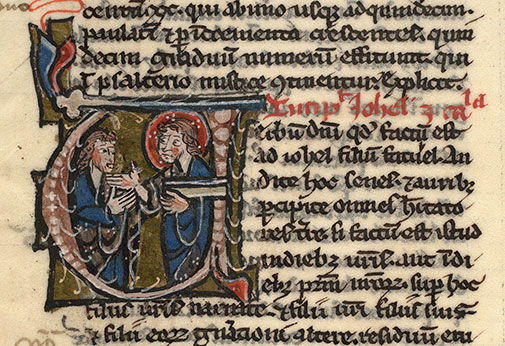 xc. qui ab uno usq; ad quindecim.
paulatī & ꝑ incremēta crescentes. quin
decim graduū numerū efficiunt. qui
ī psalterio mistice ꝯtinentur. Explicit.
Incipit Iohel
dn̄i qd̄ factū est
ad iohel filiū fatuel. Au
dite hoc senes. & auribꝫ
ꝑcipite omnes habitato
res t̄re. si factū est istud
indiebꝫ ur̄is. aut ī di
ebꝫ pr̄m ur̄oꝝ. sup hoc
filiis ur̄is narrate. & filii ur̄i filiis suis.
& filii eoꝝ gn̄ationi altere. residuum eru